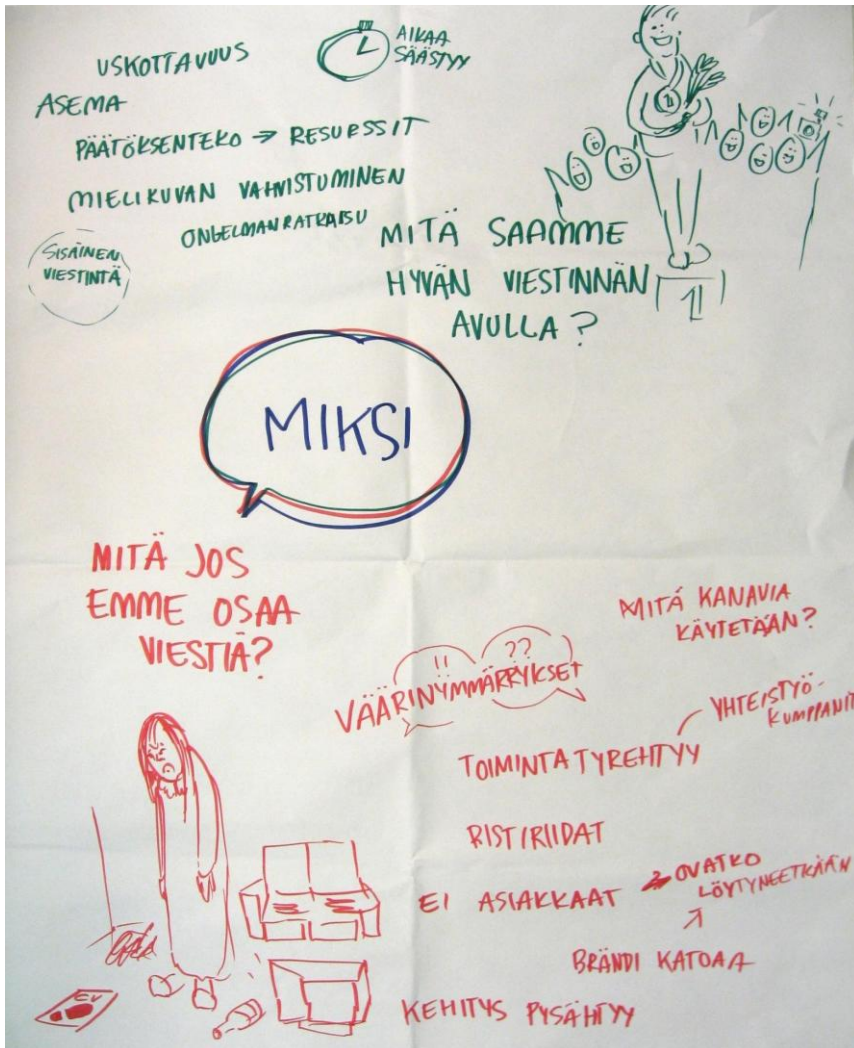 USKOTTAVUUS
AIKAA
SÄÄSTYY
ASEMA
PÄÄTÖKSENTEKO → RESURSSIT
MIELIKUVAN VAHVISTUMINEN
ONGELMANRATKAISU
SISÄINEN
VIESTINTÄ
1
MITÄ SAAMME
HYVÄN VIESTINNÄN
AVULLA?
1
MIKSI
MITÄ JOS
EMME OSAA
VIESTIÄ?
MITÄ KANAVIA
KÄYTETÄÄN?
!! ??
VÄÄRINYMMÄRRYKSET
YHTEISTYÖ-
KUMPPANIT
TOIMINTA TYREHTYY
RISTIRIIDAT
EI ASIAKKAAT → OVATKO
LÖYTYNEETKÄÄN
BRÄNDI KATOAA
CV
KEHITYS PYSÄHTYY